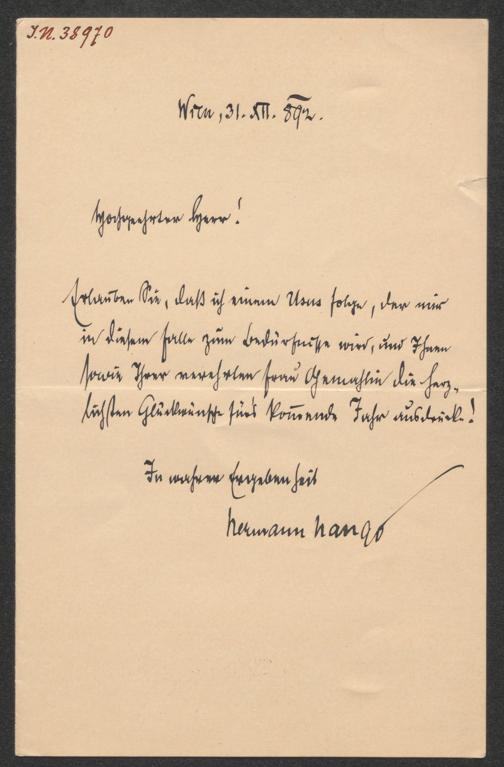 I.N. 38970
Wien, 31. XII. 892.
Hochgeehrter Herr!
Erlauben Sie, daß ich einem Usus folge, der mir
in diesem Falle zum Bedürfnisse wird, und Ihnen
sowie Ihrer verehrten Frau Gemahlin die herz-
lichsten Glückwünsche für's kom̅ende Jahr ausdrücke!
In wahrer Ergebenheit
Hermann Hango